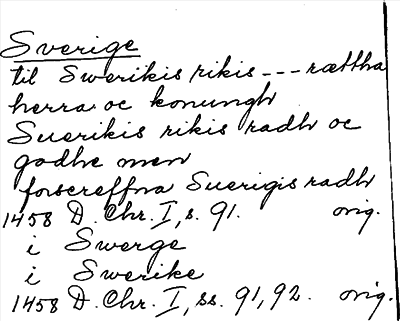 Sverige
til Swerikis rikis --- rættha
herra oc konungh
Suerikis rikis radh oc
godhe men
forscreffna Suerigis radh
1458 D. Chr. I, s. 91. orig.
i Swerge
i Swerike
1458 D. Chr. I, ss. 91, 92. orig.